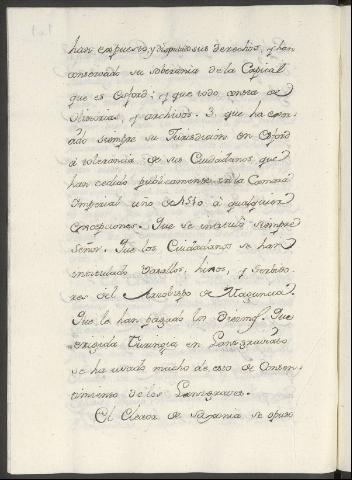 han expuesto, y disputado sus derechos, y han
conservado su soberania de la Capital
que es Erford; y que todo consta de
Historias, y archivos. 3. que ha exer-
cido siempre su Jurisdicion en Erford
á tolerancia de sus Ciudadanos que
han cedido publicamente en la Camara
Imperial año de 1510 á qualquiera
excepciones. Que se intituló siempre
Señor. Que los Ciudadanos se han
intitulado Vasallos, hijos, y Servido-
res del Arzobispo de Maguncia.
Que le han pagado los Diezmos. Que
erigida Turingia en Lansgraviato
se ha usado mucho de esto de consen-
timiento de los Lansgraves.
El Clero de Saxonia se opuso